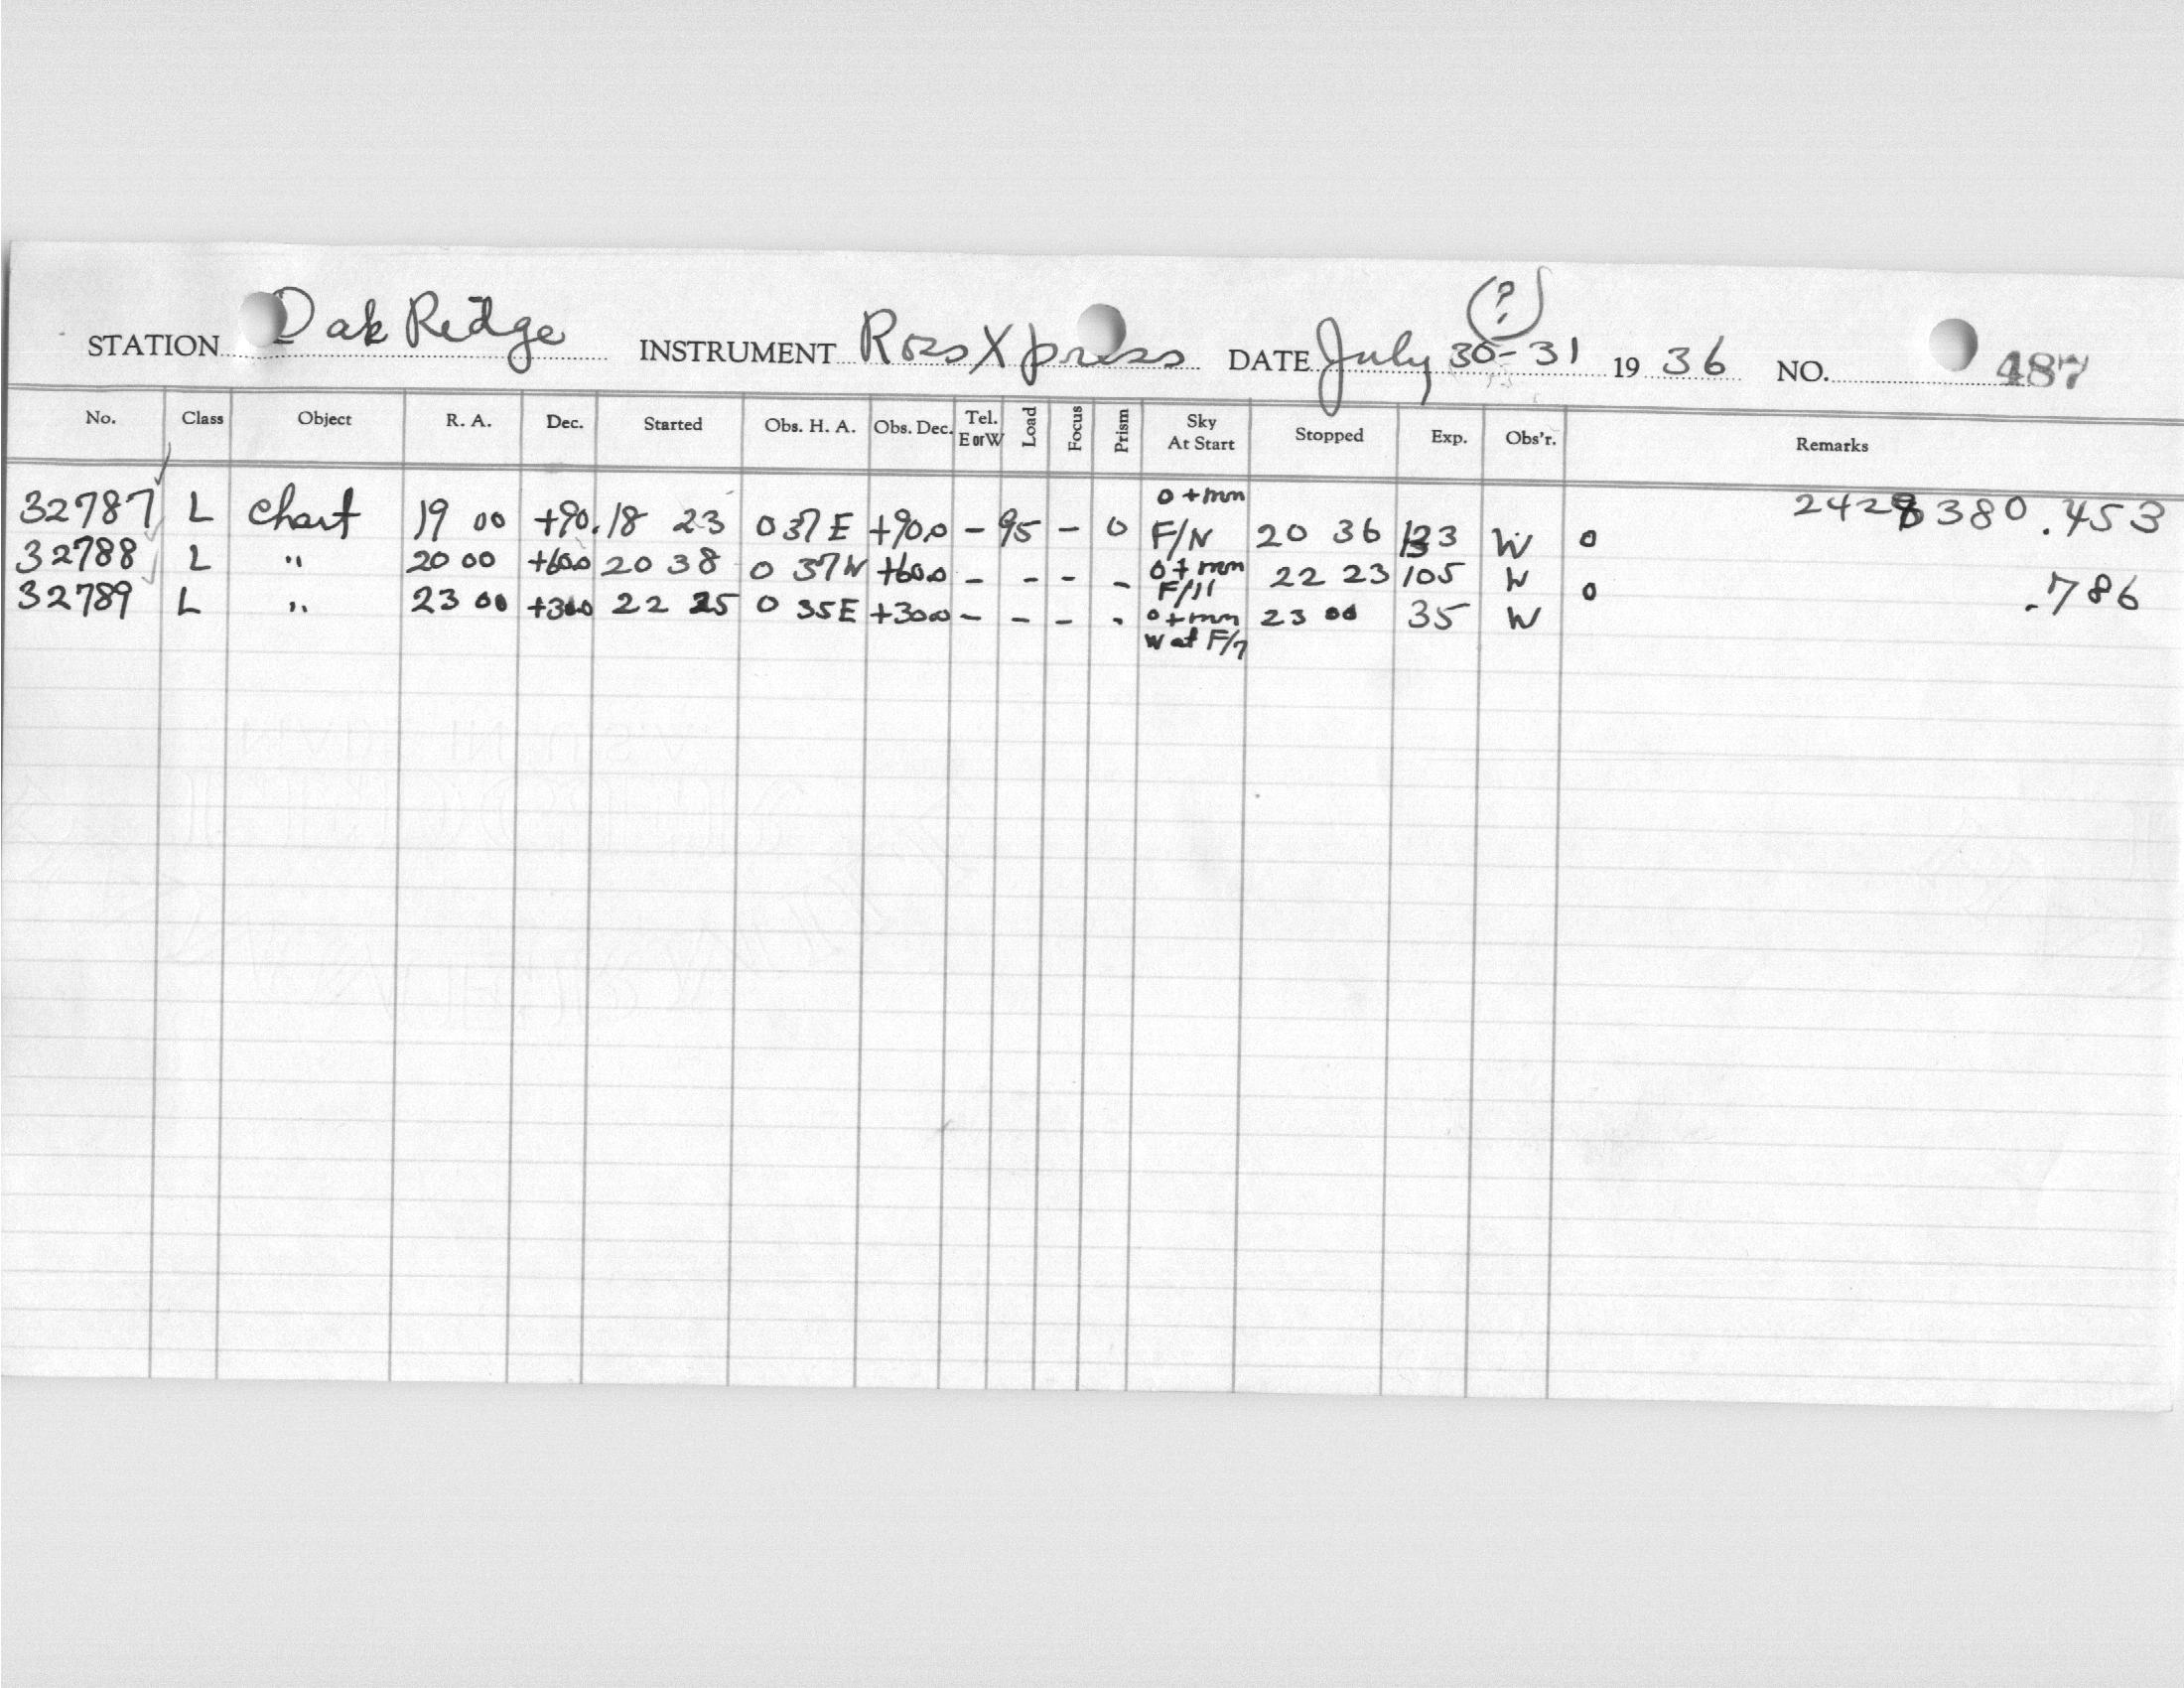 (?)
STATION Oak Ridge INSTRUMENT Ross Xpress DATE July 30-31 1936 NO. 487
No. Class Object R. A. Dec. Started Obs. H. A. Obs. Dec. Tel. E or W Load Focus Prism Sky At Start Stopped Exp. Obs'r. Remarks
0 + mn
32787 L Chart 19 00 +90. 18 23 0 37 E +90.0 - 95 - 0 F/N 20 36 133 W 0 2428380.453
32788 L " 20 00 +60.0 20 38 0 37 W +60.0 - - - - 0 + mn F/11 22 23 105 W 0
32789 L " 23 00 +30.0 22 25 0 35 E +30.0 - - - - 0 + mn 23 00 35 W .786
W at F/7